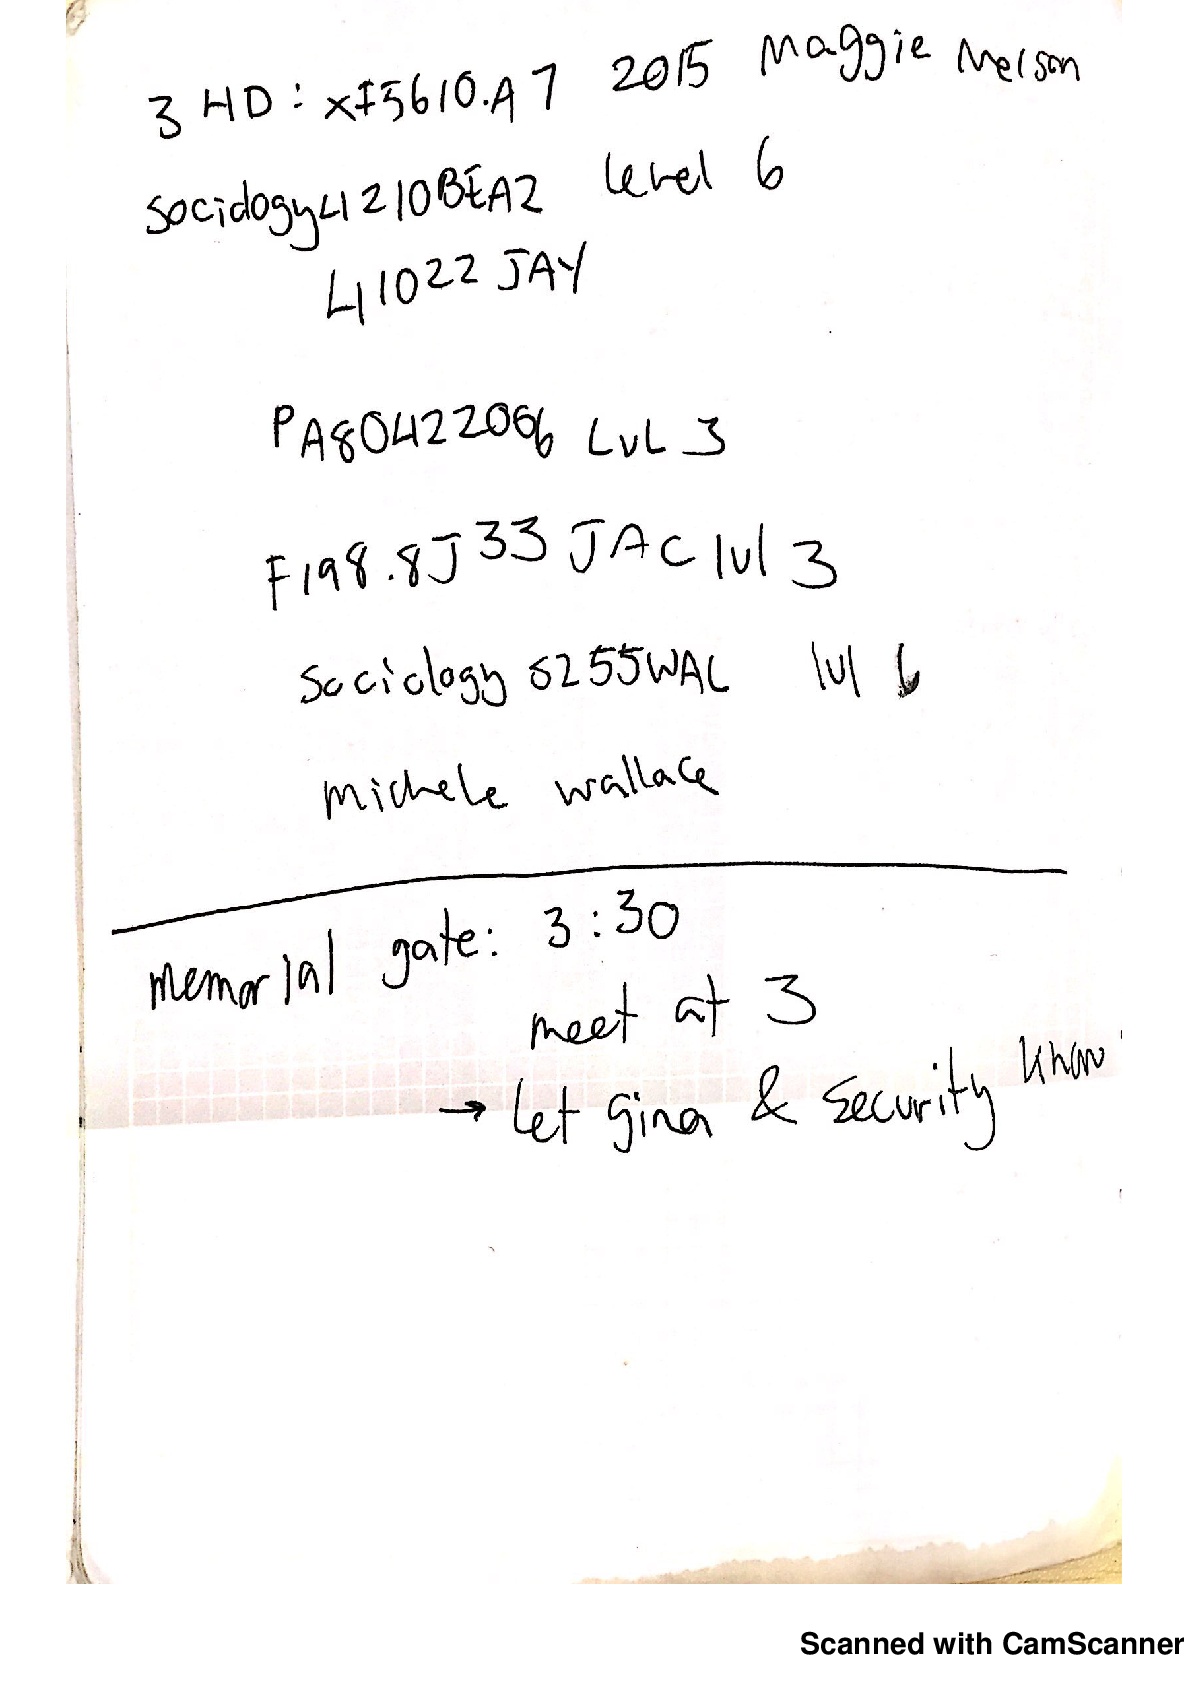 3 HD: xF5610.A7 2015 Maggie Nelson
Sociology 41210BEA2 Level 6
41022 JAY
PA80422066 LvL 3
F198.8J33 JAC lvl 3
Sociology 5255WAL lvl 6
Michele Wallace
Memorial gate: 3:30
meet at 3
→ Let Gina & Security know
Scanned with CamScanner